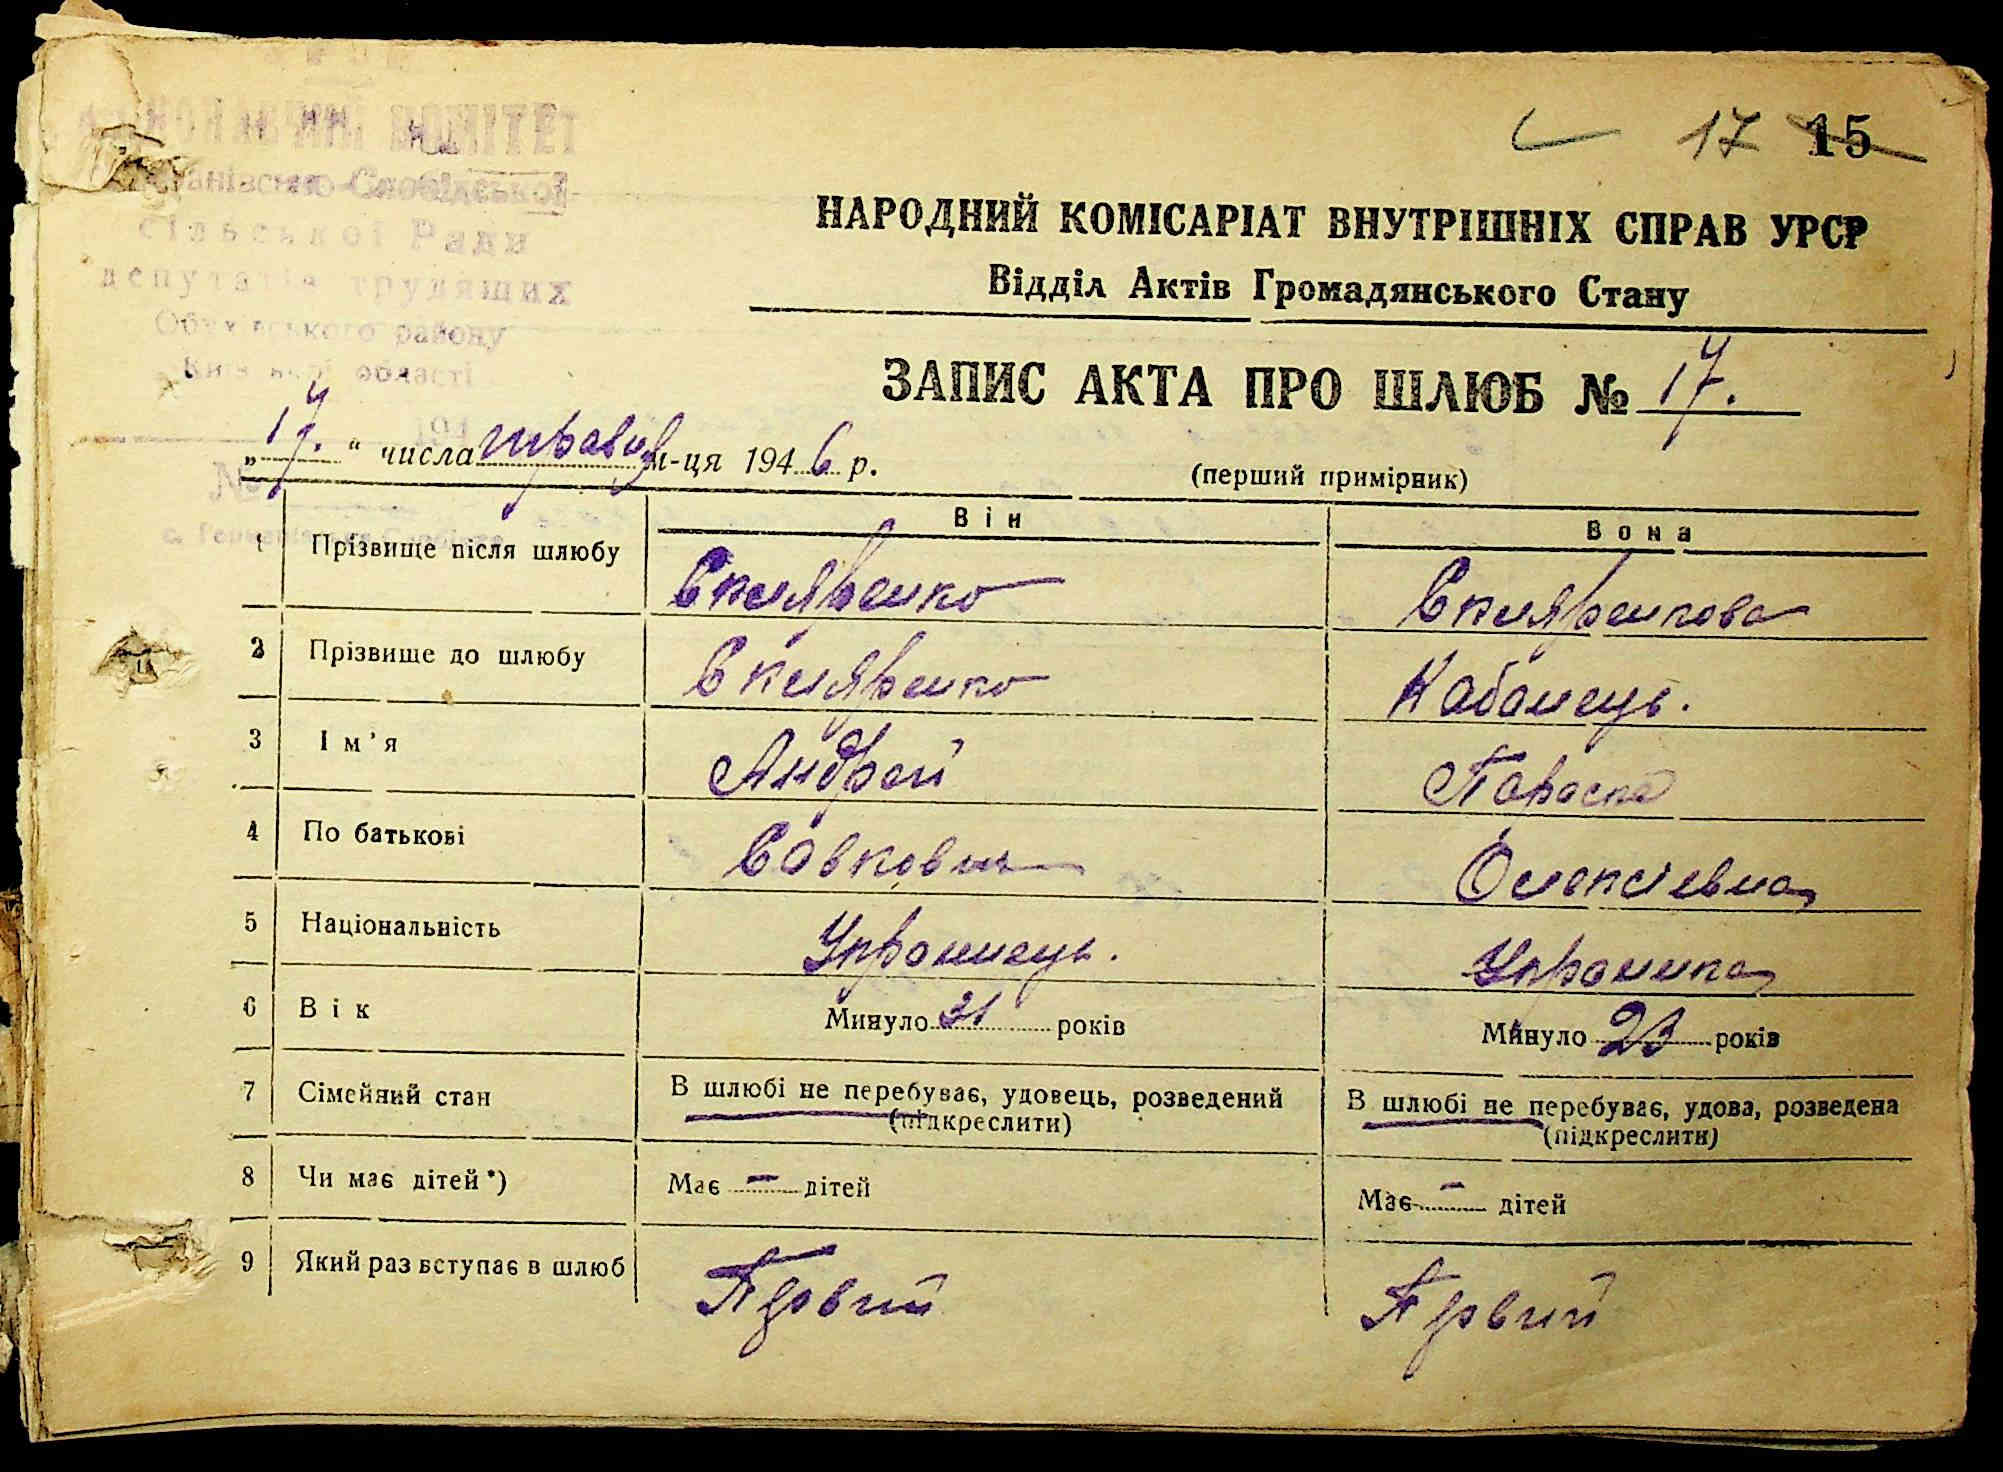 ВИКОНАВЧИЙ КОМІТЕТ
Германівсько-Слобідської
сільської Ради
депутатів трудящих
Обухівського району
Київської області
17 15
НАРОДНИЙ КОМІСАРІАТ ВНУТРІШНІХ СПРАВ УРСР
Відділ Актів Громадянського Стану
ЗАПИС АКТА ПРО ШЛЮБ № 17.
„17.“ числа травня м-ця 1946 р.
(перший примірник)
№
Він Вона
1 Прізвище після шлюбу Скляренко Скляренкова
2 Прізвище до шлюбу Скляренко Кабанець.
3 Ім'я Андрей Параска
4 По батькові Савкович Олексіевна
5 Національність Украинець. Украинка
6 Вік Минуло 31 років Минуло 23 років
7 Сімейний стан В шлюбі не перебуває, удовець, розведений В шлюбі не перебуває, удова, розведена
(підкреслити) (підкреслити)
8 Чи має дітей*) Має – дітей Має – дітей
9 Який раз вступає в шлюб Первий Первий